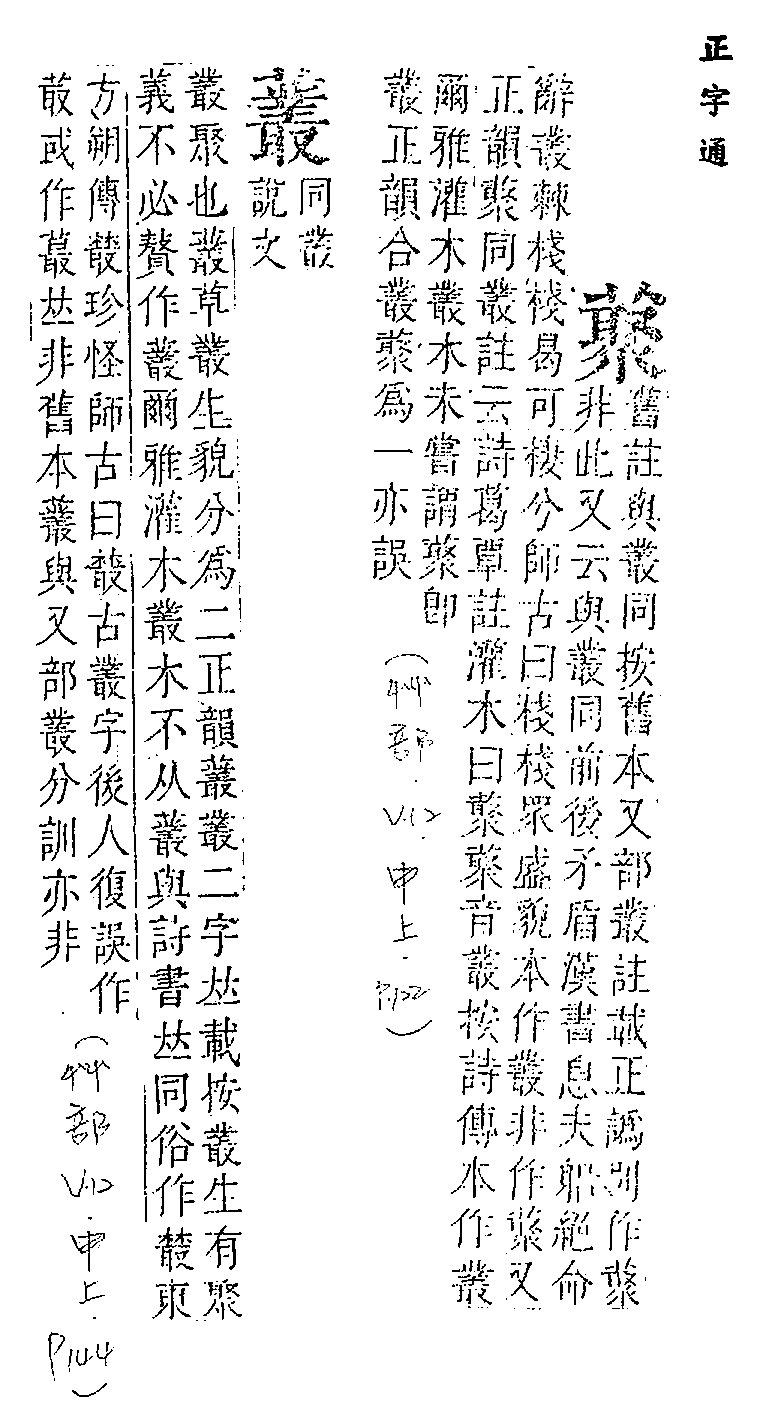 正字通
藂
舊註與叢同按舊本又部叢註載正譌別作藂
非此又云與叢同前後矛盾漢書息夫躬絕命
辭叢棘棧棧曷可棲兮師古曰棧棧眾盛貌本作叢非作藂又
正韻藂同叢註云詩葛覃註灌木曰藂藂音叢按詩傳本作叢
爾雅灌木叢木未嘗謂藂即
叢正韻合叢藂為一亦誤
(艸部.V.12.申上.P.122)
䕺
同叢
說文
叢聚也䕺草叢生貌分為二正韻叢䕺二字𠀤載按叢生有聚
義不必贅作䕺爾雅灌木叢木不从䕺與詩書𠀤同俗作藂東
方朔傳藂珍怪師古曰藂古叢字後人復誤作
菆或作蕞𠀤非舊本䕺與又部叢分訓亦非
(艸部V.12.申上.P.144)